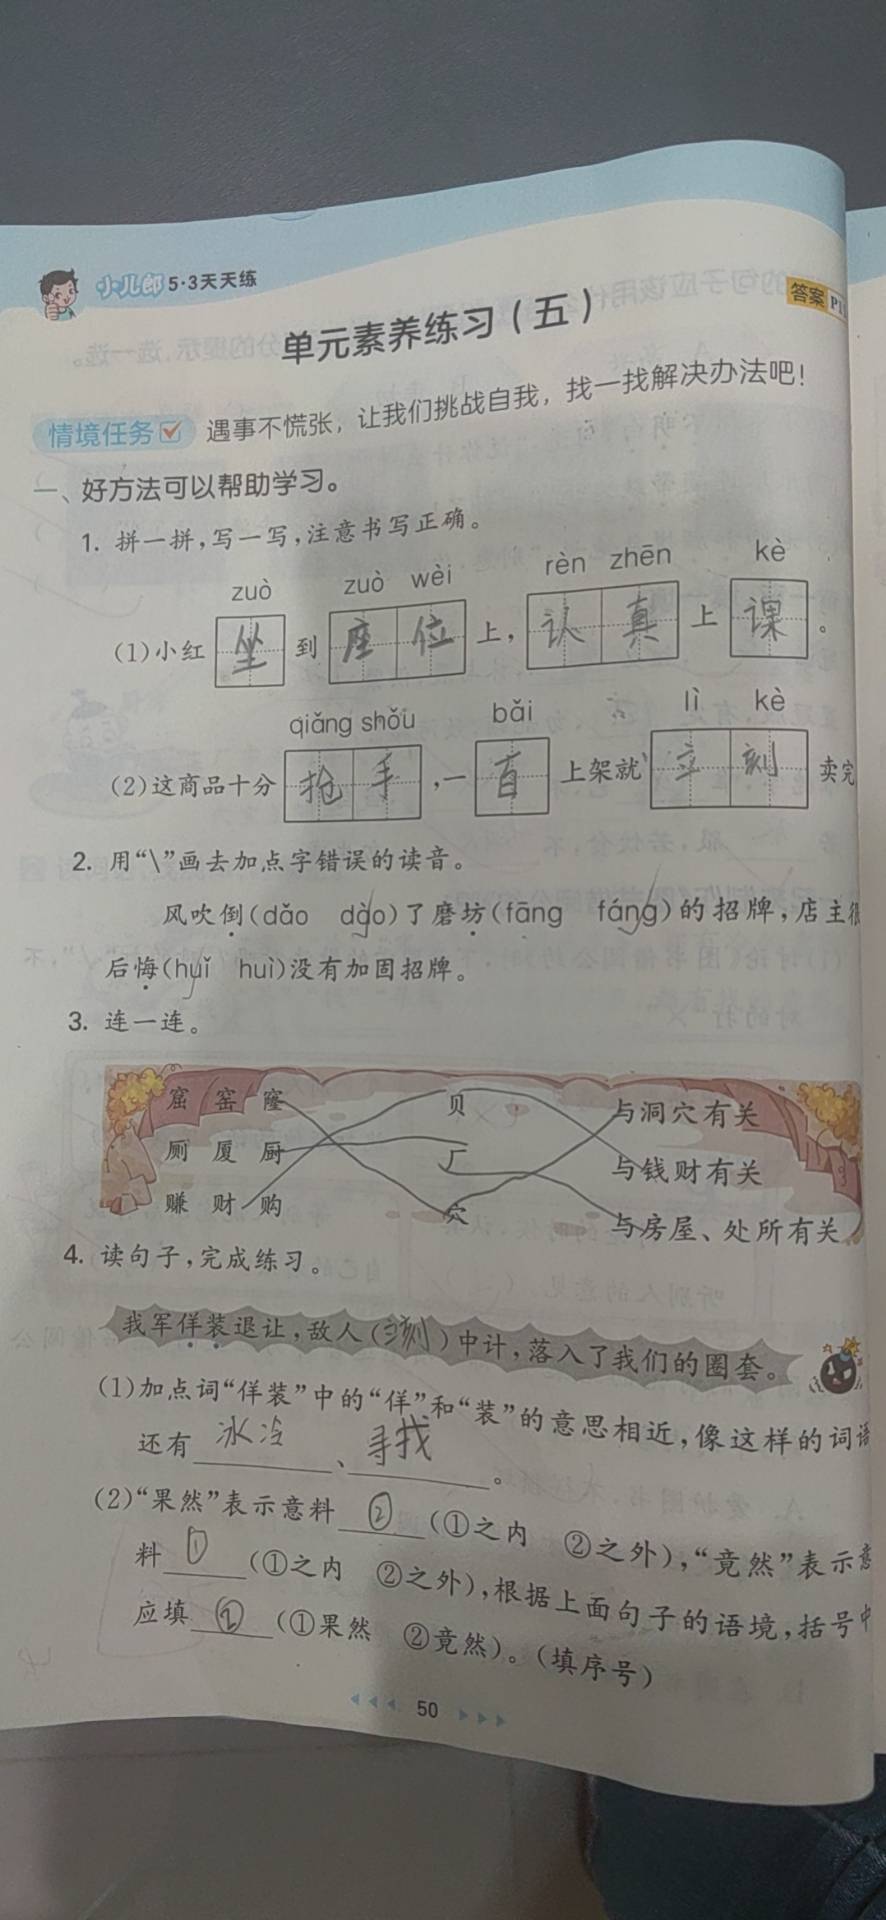 小儿郎 5·3天天练
答案 P1
单元素养练习(五)
情境任务 遇事不慌张，让我们挑战自我，找一找解决办法吧！
一、好方法可以帮助学习。
1. 拼一拼，写一写，注意书写正确。
zuò zuò wèi rèn zhēn kè
(1)小红 坐 到 座位 上，认真 上 课 。
qiǎng shǒu bǎi lì kè
(2)这商品十分 抢手 ，一 百 上架就 立刻 卖完
2. 用“\”画去加点字错误的读音。
风吹倒(dǎo dào)了磨坊(fāng fáng)的招牌，店主很
后悔(huǐ huì)没有加固招牌。
3. 连一连。
窟 窑 窿 贝 与洞穴有关
厕 厦 厨 厂 与钱财有关
赚 财 购 穴 与房屋、处所有关
4. 读句子，完成练习。
我军佯装退让，敌人( )中计，落入了我们的圈套。
(1)加点词“佯装”中的“佯”和“装”的意思相近，像这样的词语
还有 冰冷 、 寻找 。
(2)“果然”表示意料 ② (①之内 ②之外)，“竟然”表示意
料 ① (①之内 ②之外)，根据上面句子的语境，括号中
应填 ② (①果然 ②竟然)。(填序号)
50